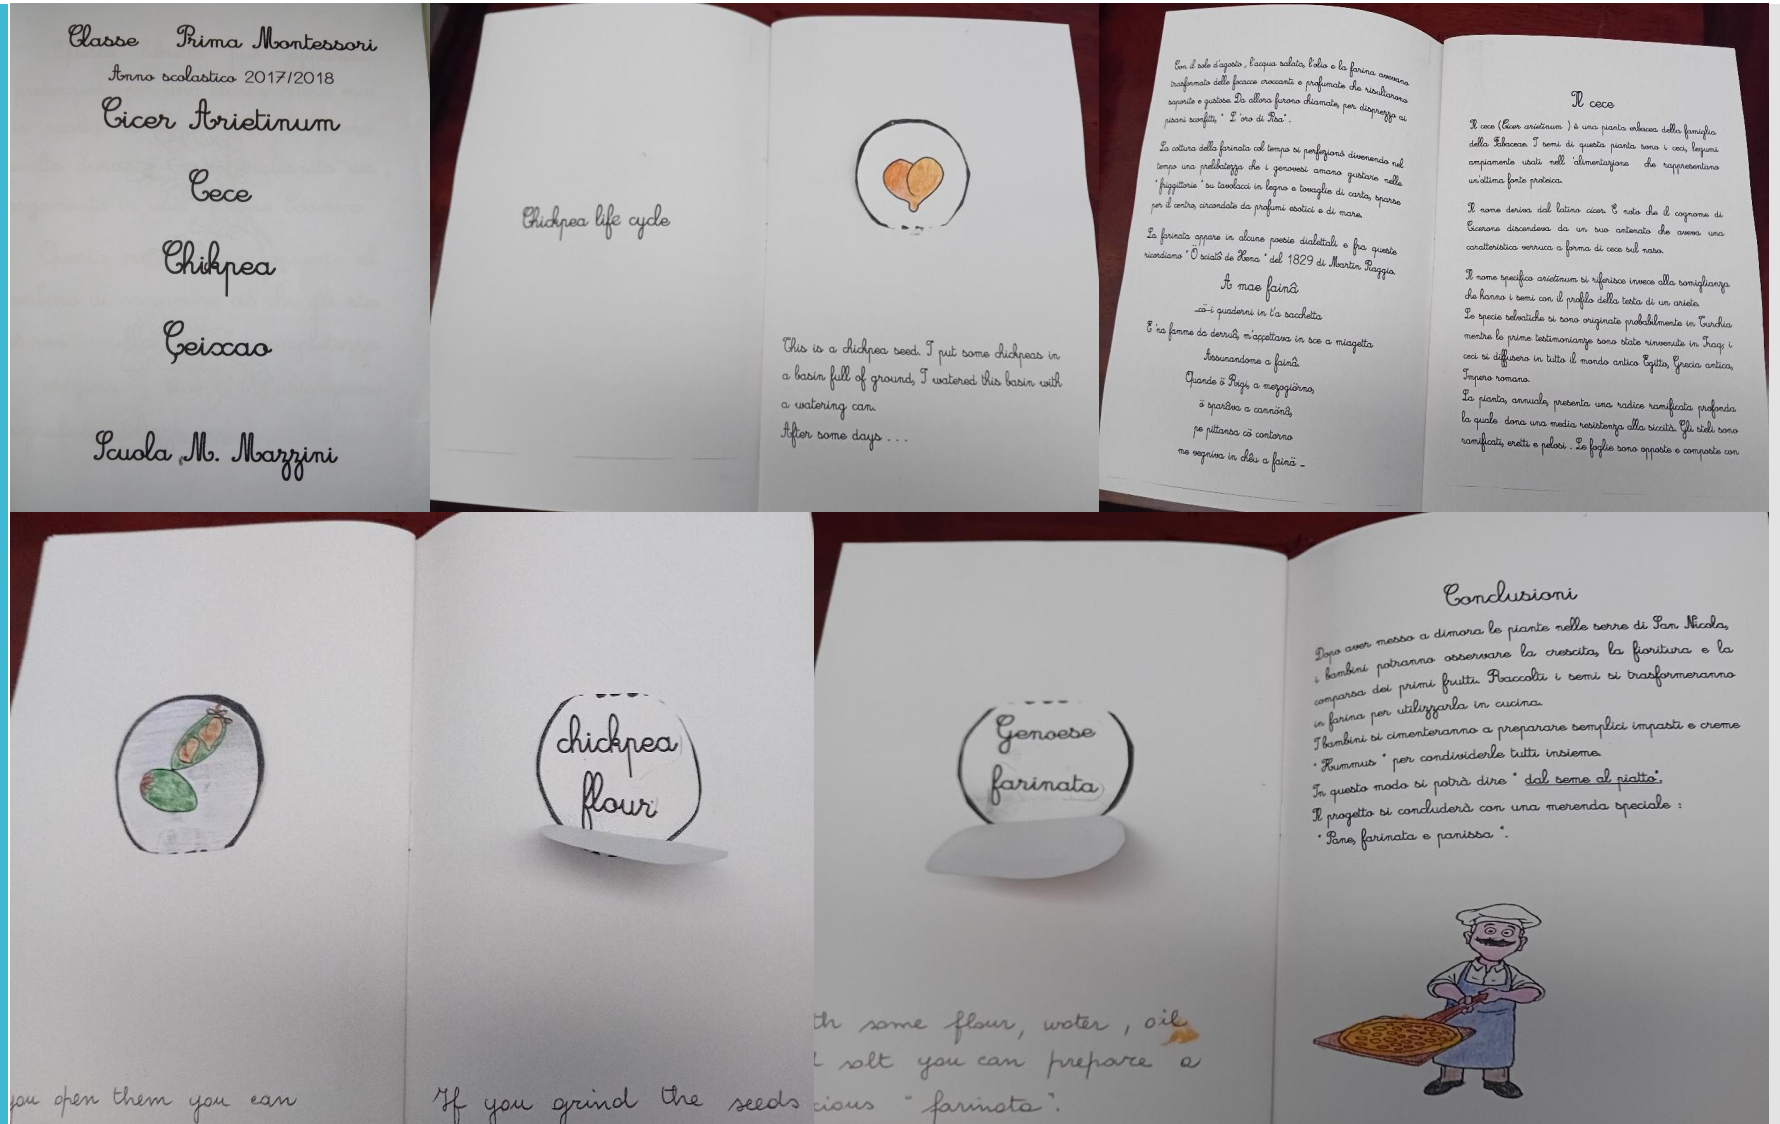 Classe Prima Montessori
Anno scolastico 2017/2018
Cicer Arietinum
Cece
Chikpea
Çeixao
Scuola M. Mazzini
Chickpea life cycle
This is a chickpea seed. I put some chickpeas in
a basin full of ground, I watered this basin with
a watering can.
After some days . . .
Con il sole d'agosto, l'acqua salata, l'olio e la farina avevano
trasformato delle focacce croccanti e profumate che risultarono
saporite e gustose. Da allora furono chiamate, per disprezzo ai
pisani sconfitti, " L'oro di Pisa".
La cottura della farinata col tempo si perfezionò divenendo nel
tempo una prelibatezza che i genovesi amano gustare nelle
"friggittorie" su tavolacci in legno e tovaglie di carta, sparse
per il centro, circondate da profumi esotici e di mare.
La farinata appare in alcune poesie dialettali e fra queste
ricordiamo "Ö sciatô de Zena" del 1829 di Martin Piaggio.
A mae fainâ
cö i quaderni in t'a sacchetta
E 'na famme da derruâ, m'aççettava in sce a miagetta
Assunandome a fainâ.
Quande ö Rigi, a mezogiörno,
ö sparâva a cannönâ,
pe pittansa cö contorno
me vegniva in chêu a fainâ -
Il cece
Il cece (Cicer arietinum ) è una pianta erbacea della famiglia
della Fabaceae. I semi di questa pianta sono i ceci, legumi
ampiamente usati nell 'alimentazione che rappresentano
un'ottima fonte proteica.
Il nome deriva dal latino cicer. È noto che il cognome di
Cicerone discendeva da un suo antenato che aveva una
caratteristica verruca a forma di cece sul naso.
Il nome specifico arietinum si riferisce invece alla somiglianza
che hanno i semi con il profilo della testa di un ariete.
Le specie selvatiche si sono originate probabilmente in Turchia
mentre le prime testimonianze sono state rinvenute in Iraq; i
ceci si diffusero in tutto il mondo antico Egitto, Grecia antica,
Impero romano.
La pianta, annuale, presenta una radice ramificata profonda
la quale dona una media resistenza alla siccità. Gli steli sono
ramificati, eretti e pelosi . Le foglie sono opposte e composte con
you open them you can
chickpea
flour
If you grind the seeds
Genoese
farinata
th some flour, water , oil
d salt you can prepare a
cious " farinata".
Conclusioni
Dopo aver messo a dimora le piante nelle serre di San Nicola,
i bambini potranno osservare la crescita, la fioritura e la
comparsa dei primi frutti. Raccolti i semi si trasformeranno
in farina per utilizzarla in cucina.
I bambini si cimenteranno a preparare semplici impasti e creme
"Hummus " per condividerle tutti insieme.
In questo modo si potrà dire " dal seme al piatto".
Il progetto si concluderà con una merenda speciale :
" Pane, farinata e panissa ".